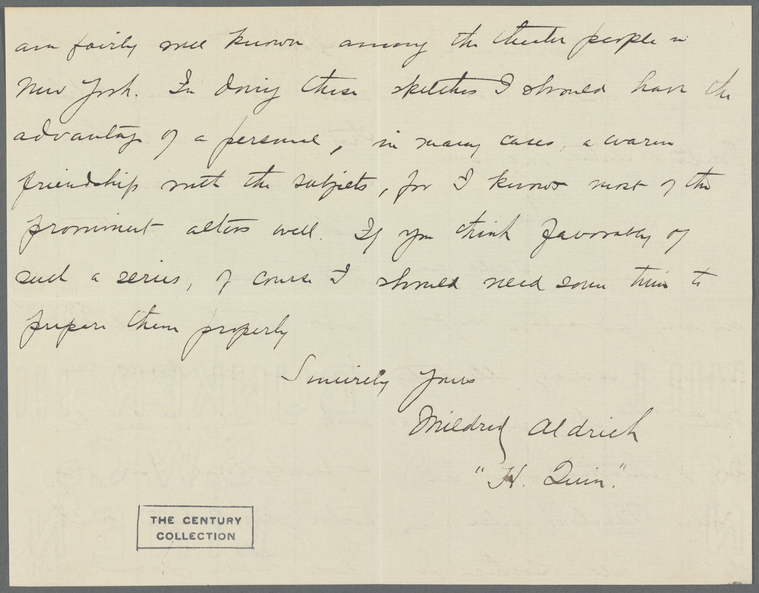 am fairly well known among the theater people in
New York. In doing these sketches I should have the
advantage of a personal, in many cases, a warm
friendship with the subjects, for I know most of the
prominent actors well. If you think favorably of
such a series, of course I should need some time to
prepare them properly
Sincerely Yours
Mildred Aldrich
"H. Quinn."
THE CENTURY
COLLECTION